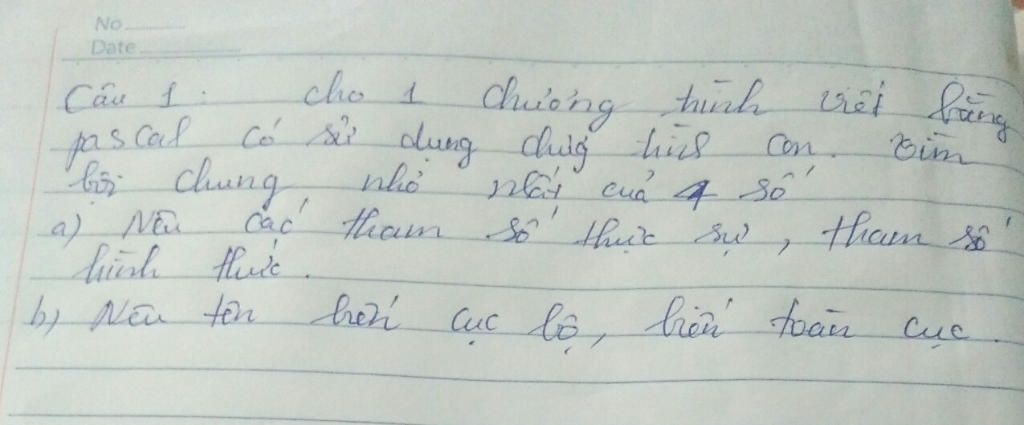 No
Date
Câu 1: cho 1 chương trình viết bằng
pascal có sử dụng chương trình con. Tìm
bội chung nhỏ nhất của 4 số
a) Nêu các tham số thực sự, tham số
hình thức.
b) Nêu tên biến cục bộ, biến toàn cục.